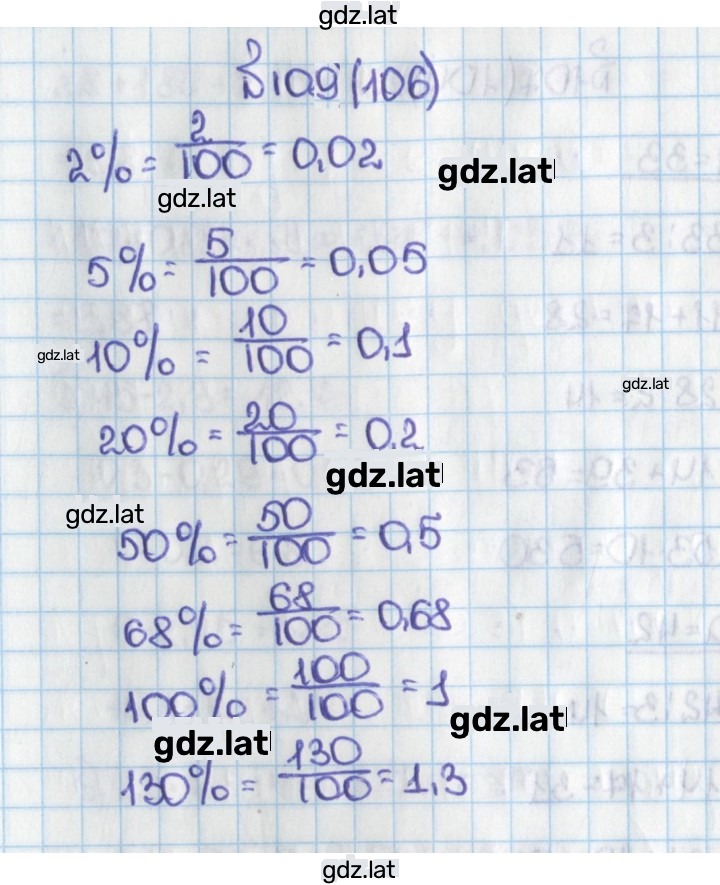 gdz.lat
109 (106)
2% = 2/100 = 0,02
gdz.lat
gdz.lat
5% = 5/100 = 0,05
10% = 10/100 = 0,1
gdz.lat
gdz.lat
20% = 20/100 = 0.2
gdz.lat
gdz.lat
50% = 50/100 = 0,5
68% = 68/100 = 0,68
100% = 100/100 = 1
gdz.lat
gdz.lat
130% = 130/100 = 1,3
gdz.lat